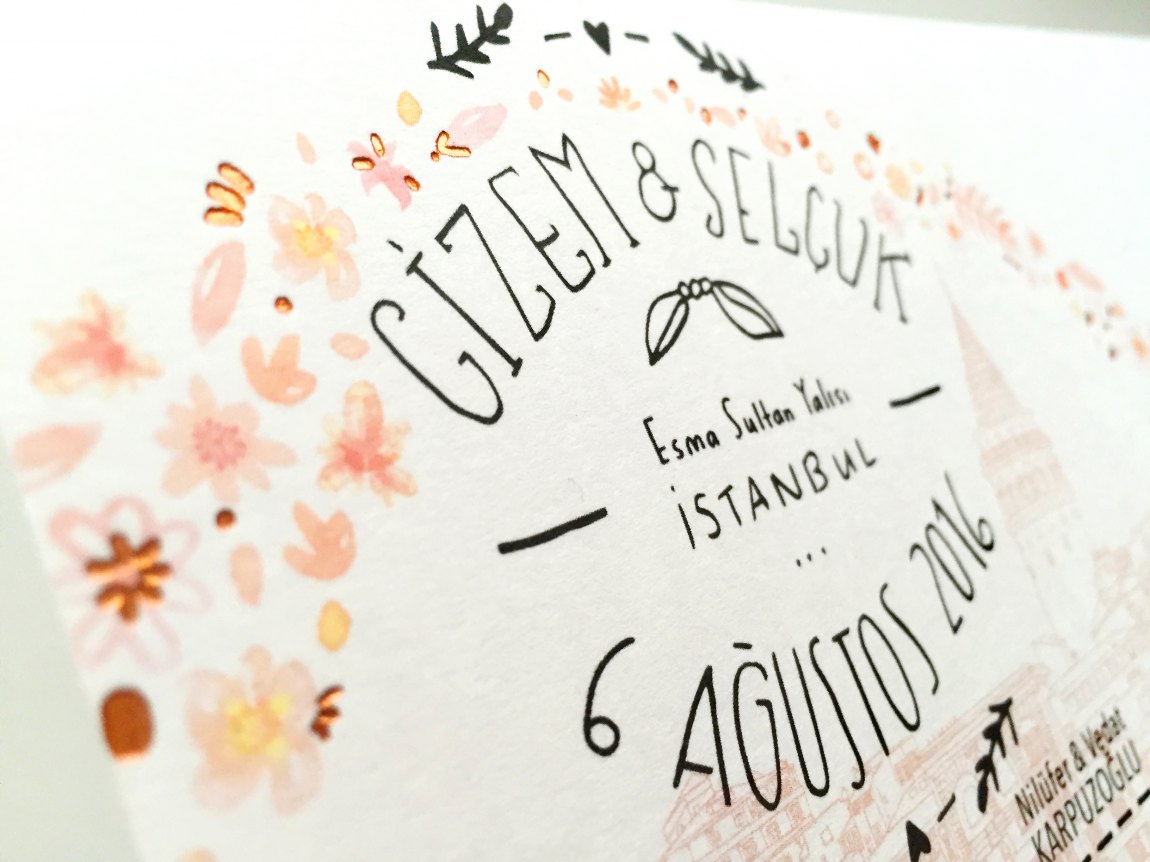 GİZEM & SELÇUK
Esma Sultan Yalısı
İSTANBUL
...
6 AĞUSTOS 2016
Nilüfer & Vedat
KARPUZOĞLU